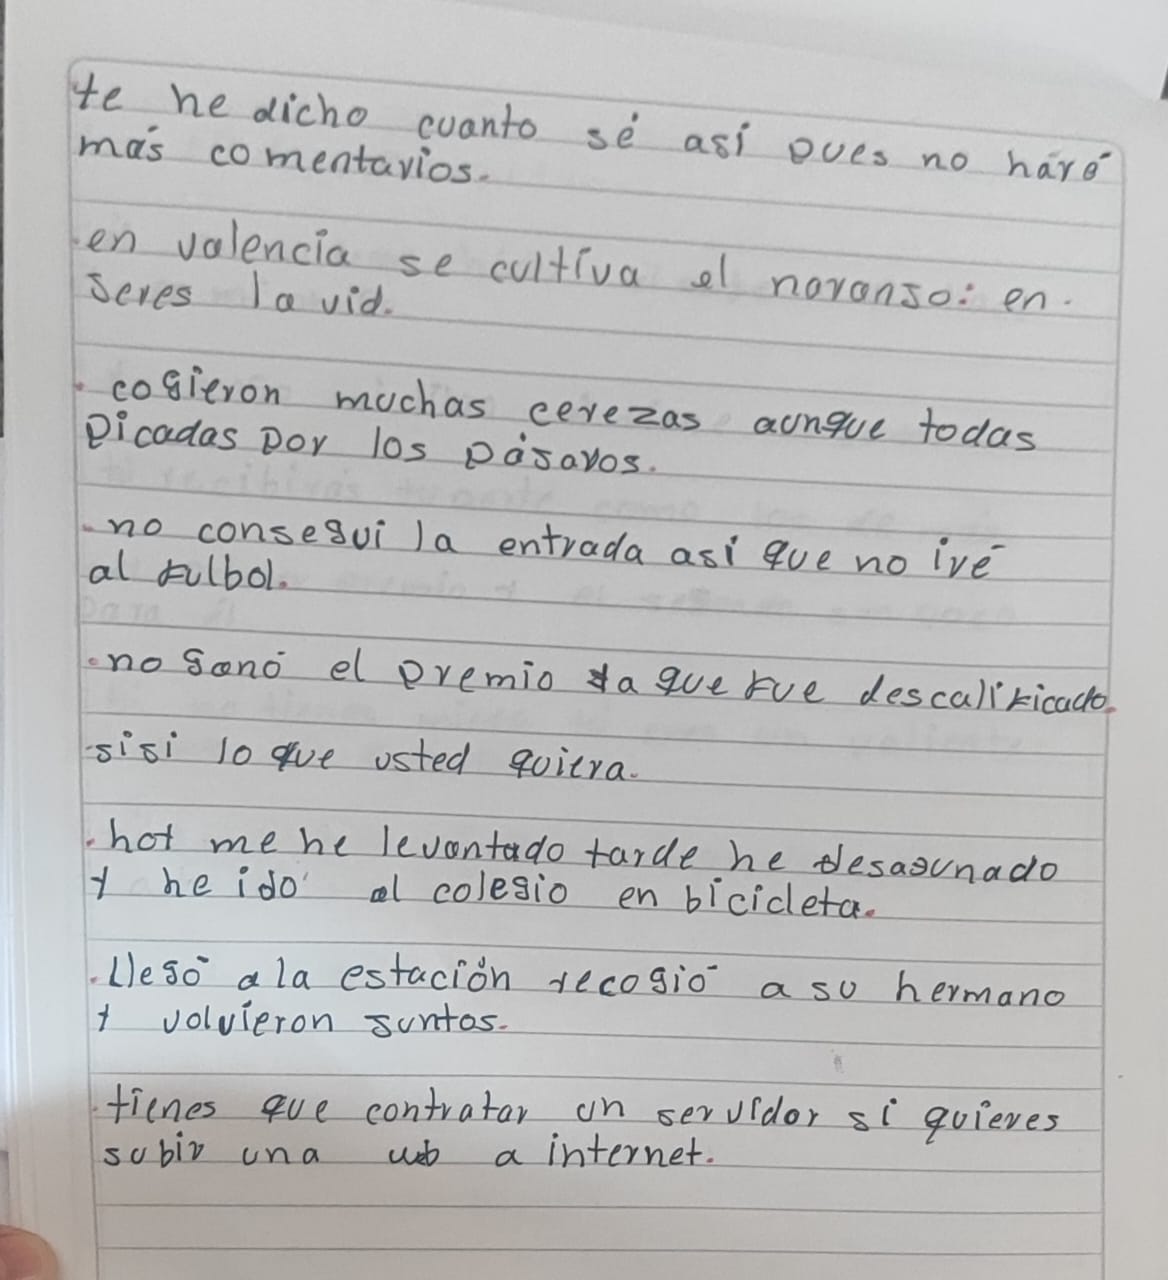 te he dicho cuanto sé así pues no haré
más comentarios.
.en valencia se cultiva el naranjo: en.
jeres la vid.
. cogieron muchas cerezas aunque todas
picadas por los pájaros.
.no consegui la entrada así que no iré
al fulbol.
.no ganó el premio ya que fue descalificado.
.sisi lo que usted quiera.
.hoy me he levantado tarde he desayunado
y he ido al colegio en bicicleta.
.llegó a la estación recogió a su hermano
y volvieron juntos.
.tienes que contratar un servidor si quieres
subir una web a internet.